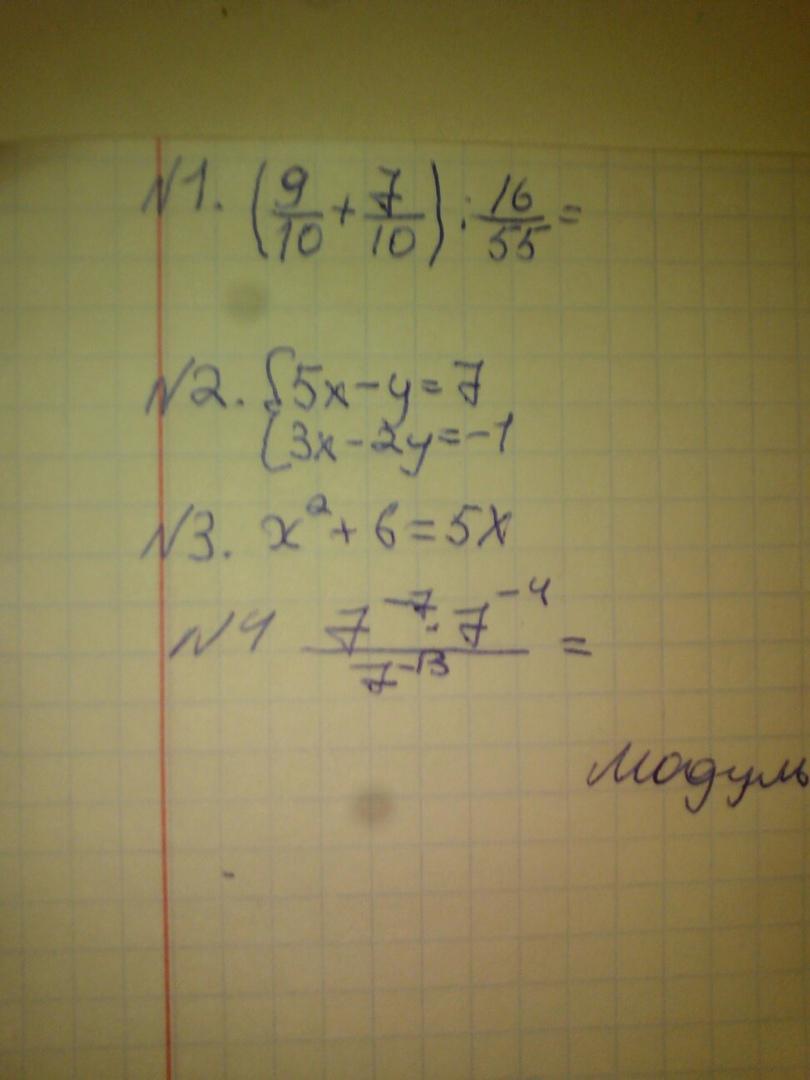 N1. (9/10 + 7/10) : 16/55 =
N2. { 5x - y = 7
3x - 2y = -1
N3. x² + 6 = 5x
N4 7⁻⁷ · 7⁻⁴ / 7⁻¹³ =
Модуль